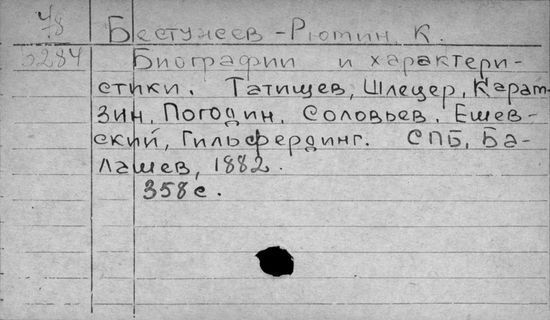 Ч/8
Бестужев-Рютин, К.
3284 Биографии и характери-
стики. Татищев, Шлецер, Карам-
зин, Погодин, Соловьев, Ешев-
ский, Гильфердинг. СПБ, Ба-
лашев, 1882.
358с.